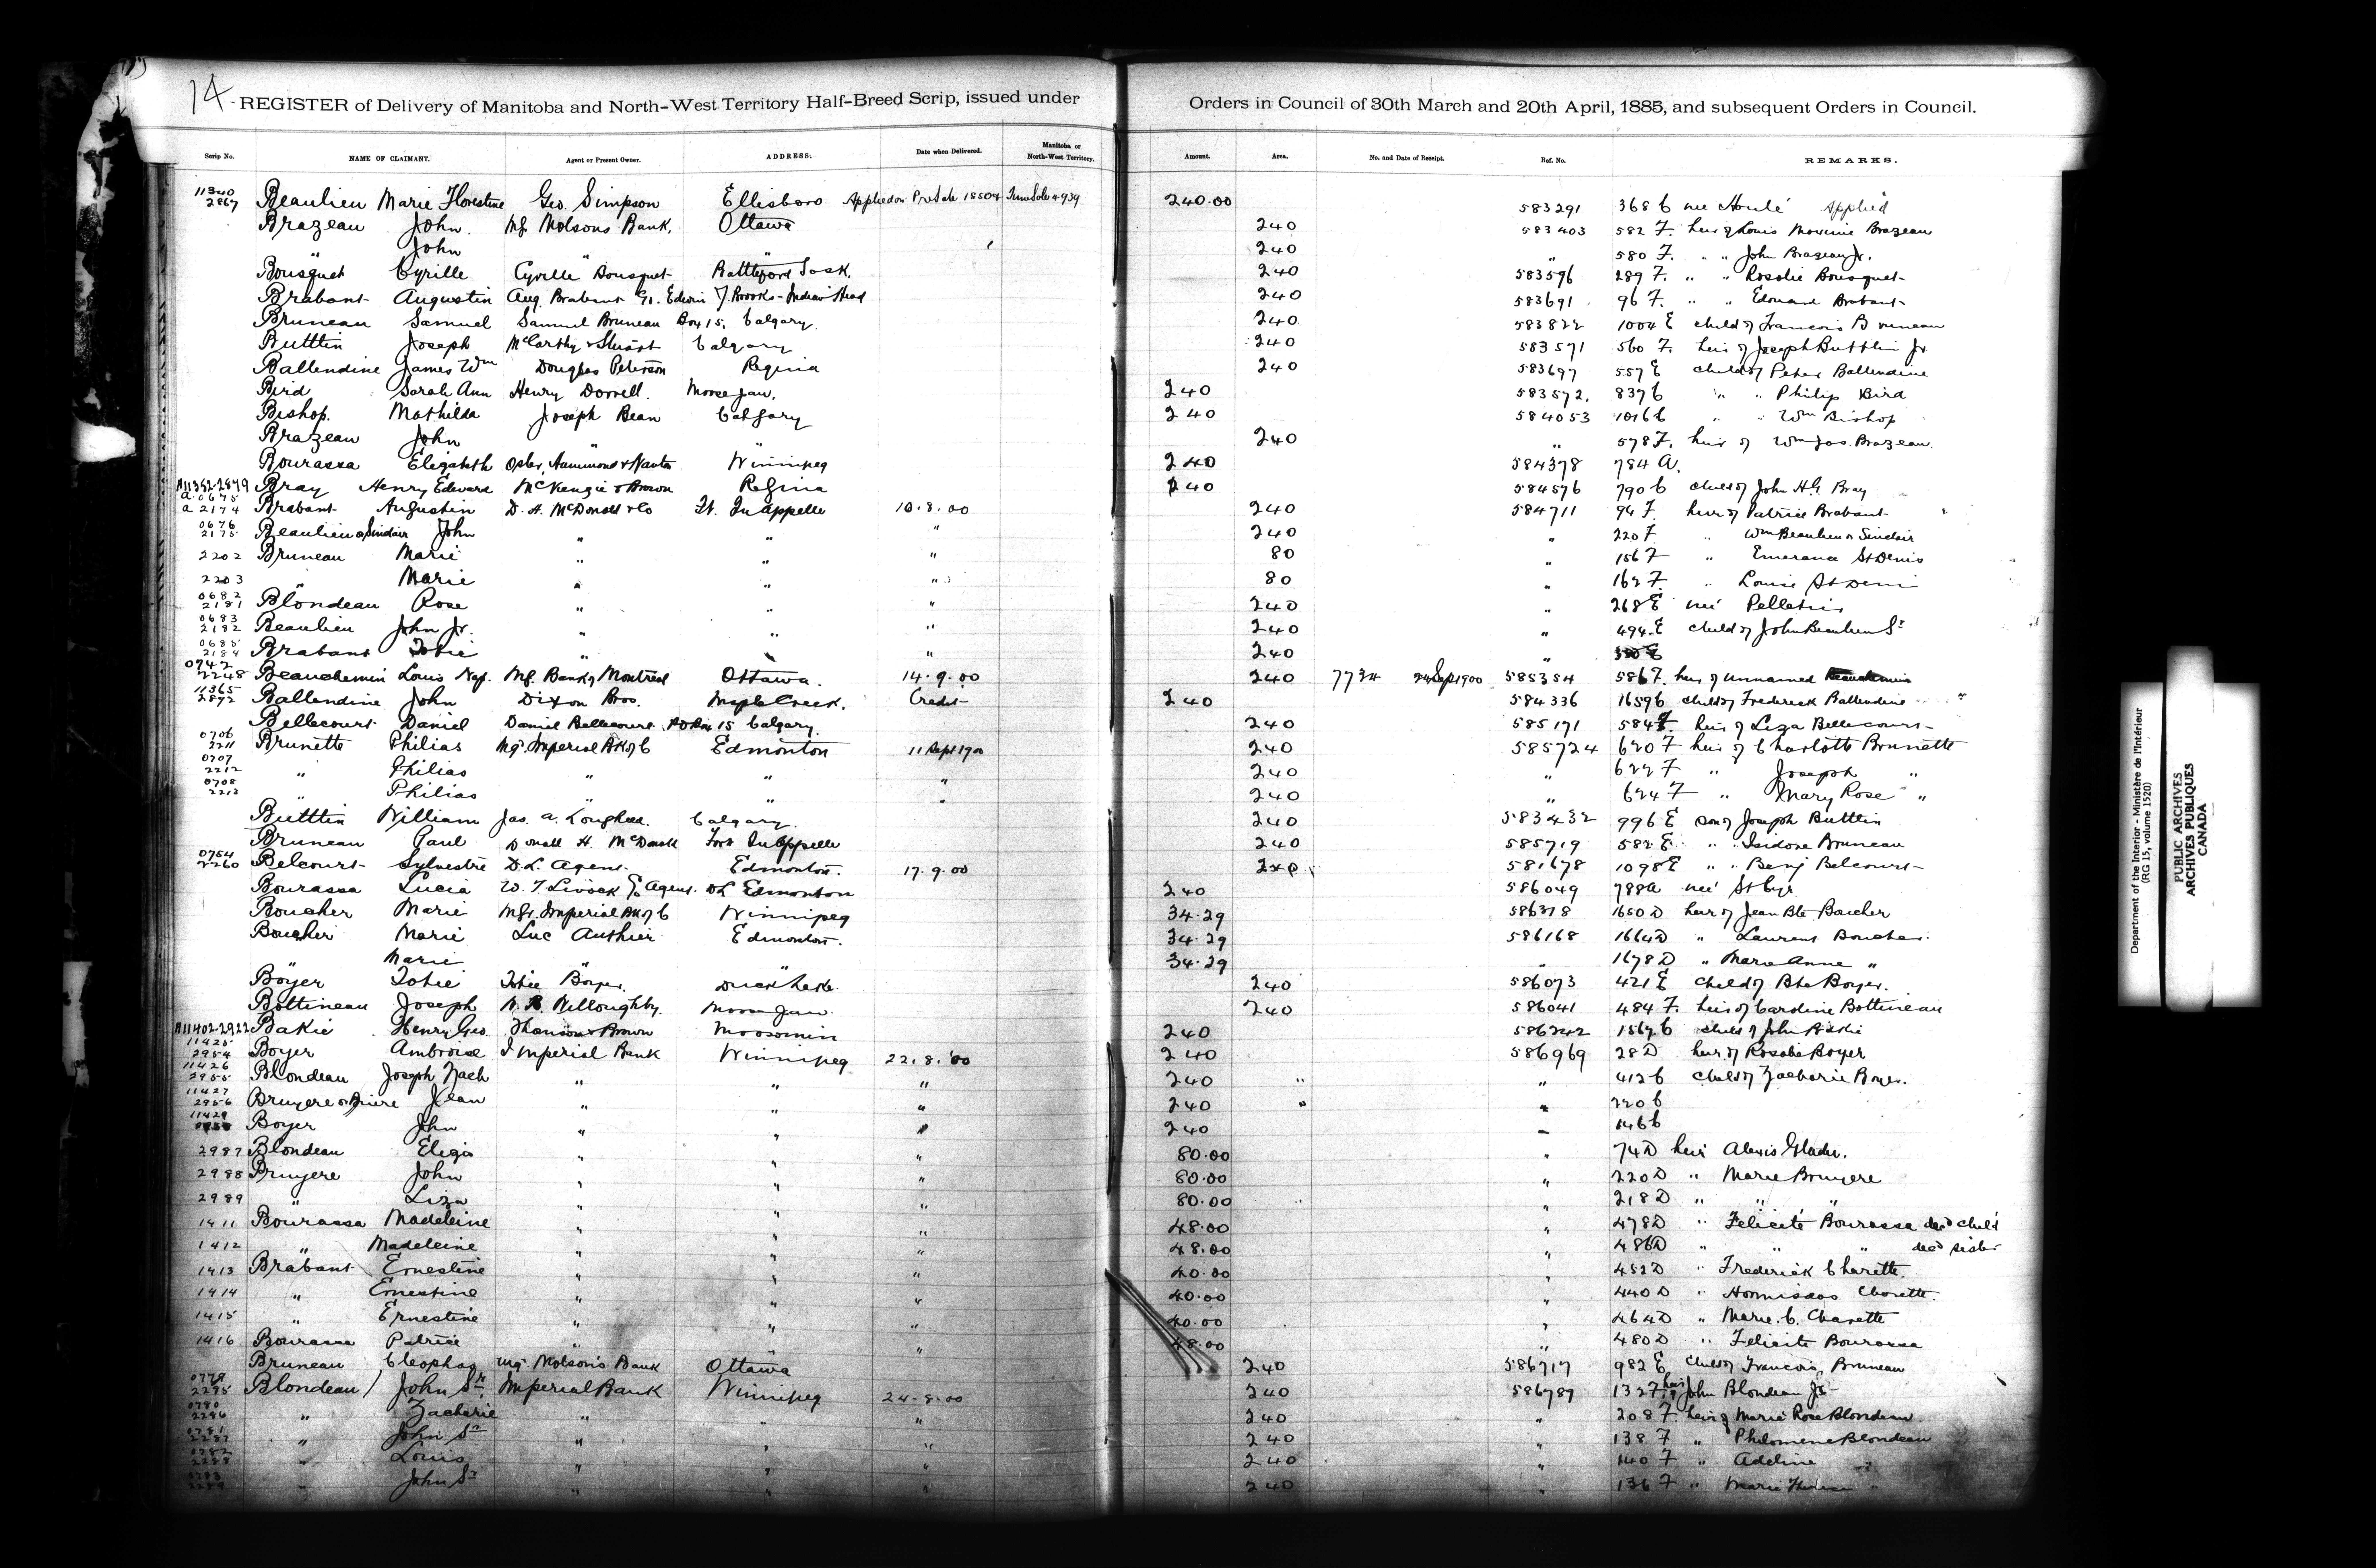 14
REGISTER of Delivery of Manitoba and North-West Territory Half-Breed Scrip, issued under Orders in Council of 30th March and 20th April, 1885, and subsequent Orders in Council.
Scrip No. NAME OF CLAIMANT. Agent or Present Owner. ADDRESS. Date when Delivered. Manitoba or North-West Territory. Amount. Area. No. and Date of Receipt. Ref. No. REMARKS.
11340 2867 Beaulieu Marie Florestine Geo. Simpson Ellisboro Applied on Pre Sale 18504 240.00 583291 368 C née Houle Applied
Brazeau John Mg. Molsons Bank, Ottawa 240 583403 582 F. heir of Louis Brazeau
" John " " 240 " 580 F. " " John Brazeau Jr.
Bousquet Cyrille Cyrille Bousquet Battleford Sask. 240 583596 289 F. " " Rosalie Bousquet
Brabant Augustin Aug. Brabant Edwin J. Brooks - Indian Head 240 583691 96 F. " " Edouard Brabant
Bruneau Samuel Samuel Bruneau Box 15, Calgary. 240 583822 1004 E child of Francois Bruneau
Buttlin Joseph McCarthy & Stuart Calgary 240 583571 560 F. heir of Joseph Buttlin Jr
Ballendine James Wm Douglas Peterson Regina 240 583697 557 E child of Peter Ballendine
Bird Sarah Ann Henry Dorrell. Moose Jaw. 240 583572. 837 C " " Philip Bird
Bishop. Mathilda Joseph Bean Calgary 240 584053 1016 C " " Wm Bishop
Brazeau John " " 240 " 578 F. heir of Wm Jas. Brazeau.
Bourassa Elizabeth Osler, Hammond & Nanton Winnipeg 240 584378 784 A.
A11352-2879 Bray Henry Edward McKenzie & Brown Regina 240 584576 790 C child of John H.G. Bray
a 0675 a 2174 Brabant Augustin D. H. McDonald & Co Ft. Qu'Appelle 10.8.00 240 584711 94 F. heir of Patrice Brabant
0676 2175 Beaulieu or Sinclair John " " " 240 " 220 F. " Wm Beaulieu or Sinclair
2202 Bruneau Marie " " " 80 " 156 F " Emerana St Denis
2203 " Marie " " " 80 " 162 F. " Louise St Denis
0682 2181 Blondeau Rose " " " 240 " 268 E née Pelletier
0683 2182 Beaulieu John Jr. " " " 240 " 494 E child of John Beaulieu Sr
0685 2184 Brabant Tobie " " " 240 "
0742 2248 Beauchemin Louis Nap. Mg. Bank of Montreal Ottawa. 14.9.00 240 7734 24 Sep 1900 585354 586 F. heir of unnamed Beauchemin
11365 2892 Ballendine John Dixon Bros. Maple Creek. Credit 240 584336 1659 C child of Frederick Ballendine
Bellecourt Daniel Daniel Bellecourt PO Box 15 Calgary. 240 585171 584 F. heir of Liza Bellecourt
0706 2211 Brunette Philias Mgr. Imperial Bk of C Edmonton 11 Sept 1900 240 585724 620 F heir of Charlotte Brunette
0707 2212 " Philias " " 240 " 622 F " Joseph "
0708 2213 " Philias " " " 240 " 624 F " Mary Rose "
Buttlin William Jas. A. Lougheed. Calgary. 240 583432 996 E son of Joseph Buttlin
Bruneau Paul Donald H. McDonald Fort Qu'Appelle 240 585719 582 E " " Isidore Bruneau
0754 2260 Belcourt Sylvestre D.L. Agent. Edmonton. 17.9.00 240 581678 1098 E " " Benj Belcourt
Bourassa Lucia Agent. DL Edmonton 240 586049 788 A née St Cyr.
Boucher Marie Mgr. Imperial Bk of C Winnipeg 34.29 586378 1650 D heir of Jean Bte. Boucher
Boucher Marie Luc Authier Edmonton. 34.29 586168 1664 D " Laurent Boucher.
" Marie " " 34.29 " 1678 D " Marie Anne "
Boyer Tobie Tobie Boyer. Duck Lake. 240 586073 421 E child of Bte Boyer.
Bottineau Joseph Willoughby. Moose Jaw. 240 586041 484 F. heir of Caroline Bottineau
A11402-2922 Bakie Henry Geo. Thomson & Brown Moosomin 240 586242 1567 C child of John Bakie
11425 2954 Boyer Ambroise Imperial Bank Winnipeg 22.8.00 240 586969 28 D heir of Rosalie Boyer
11426 2955 Blondeau Joseph Zach " " " 240 " " 412 C child of Zacharie Boyer.
11427 2956 Bruyere or Briere Jean " " " 240 " " 220 C
11429 Boyer John " " " 240 " 146 C
2987 Blondeau Eliza " " " 80.00 " 74 D heir Alexis Gladu.
2988 Bruyere John " " " 80.00 " 220 D " Marie Bruyere
2989 " Liza " " " 80.00 " 218 D " " "
1411 Bourassa Madeleine " " " 48.00 " 478 D " Felicité Bourassa decd child
1412 " Madeleine " " " 48.00 " 486 D " " " decd sister
1413 Brabant Ernestine " " " 40.00 " 452 D " Frederick Charette.
1414 " Ernestine " " " 40.00 " 440 D " Hormisdas Charette.
1415 " Ernestine " " " 40.00 " 464 D " Marie. C. Charette
1416 Bourassa Patrice " " " 48.00 " 480 D " Felicite Bourassa
Bruneau Cleophas Mgr. Molsons Bank Ottawa 240 586717 982 E child of Francois Bruneau
0779 2295 Blondeau John Sr. Imperial Bank Winnipeg 24-8-00 240 586789 132 F. heir of John Blondeau Jr
0780 2286 " Zacharie " " " 240 " 208 F. heir of Marie Rose Blondeau.
0781 2287 " John Sr " " " 240 " 138 F " Philomene Blondeau
0782 2288 " Louis " " " 240 " 140 F " Adeline "
0783 2289 " John Sr " " " 240 " 136 F " Marie "
Department of the Interior - Ministère de l'Intérieur
(RG 15, volume 1520)
PUBLIC ARCHIVES
ARCHIVES PUBLIQUES
CANADA